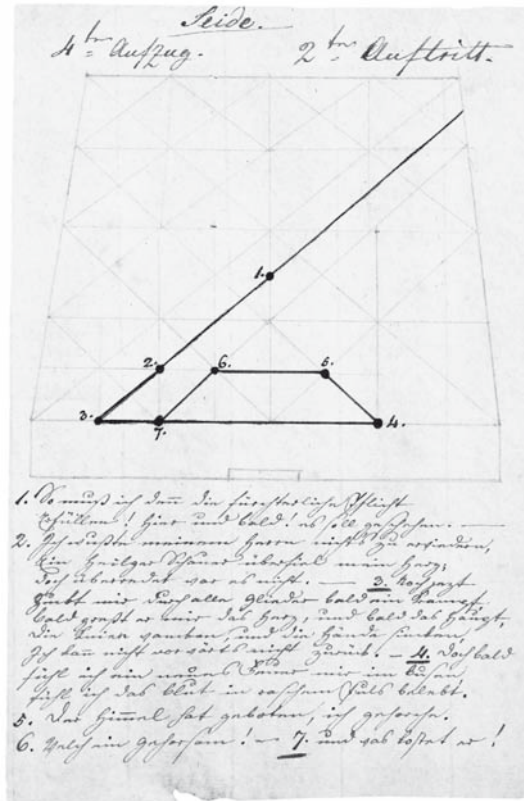 Seide.
4ter Aufzug. 2ter Auftritt.
1.
2. 6. 5.
3. 7. 4.
1. So muß ich denn die fürchterliche Pflicht
Erfüllen! Hier und bald! es soll geschehen. —
2. Ich wußte meinem Herrn nichts zu erwiedern,
Ein heilger Schauer überfiel mein Herz;
Doch überredet war es nicht. — 3. Noch jetzt
Zuckt mir durch alle Glieder bald ein Krampf
bald preßt es mir das Herz, und bald das Haupt,
Die Kniee wanken und die Hände sinken,
Ich kann nicht vorwärts nicht zurück. — 4. Doch bald
fühl ich ein neues Feuer mir im Busen
fühl ich das Blut in raschem Puls belebt.
5. Der Himmel hat geboten, ich gehorche.
6. Welch ein Gehorsam! — 7. und was kostet er!